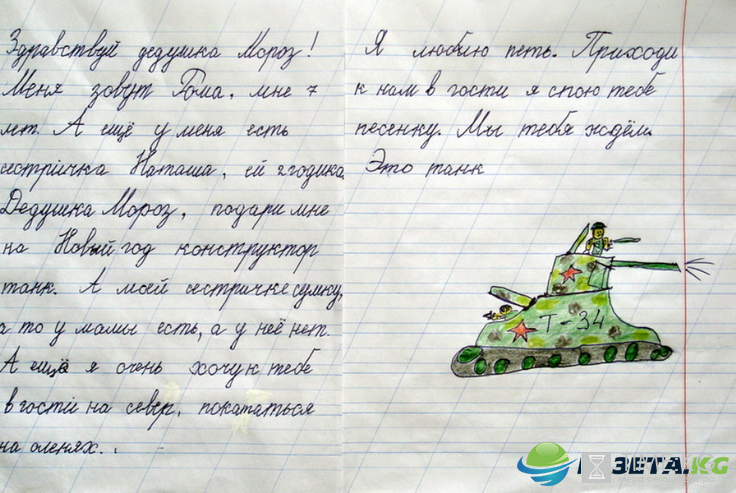 Здравствуй дедушка Мороз!
Меня зовут Рома, мне 7
лет. А ещё у меня есть
сестричка Наташа, ей 2 годика.
Дедушка Мороз, подари мне
на Новый год конструктор
танк. А моей сестричке сумку,
а то у мамы есть, а у неё нет.
А ещё я очень хочу к тебе
в гости на север, покататься
на оленях.
Я люблю петь. Приходи
к нам в гости я спою тебе
песенку. Мы тебя ждём.
Это танк
Т-34
ЗЕТА.KG